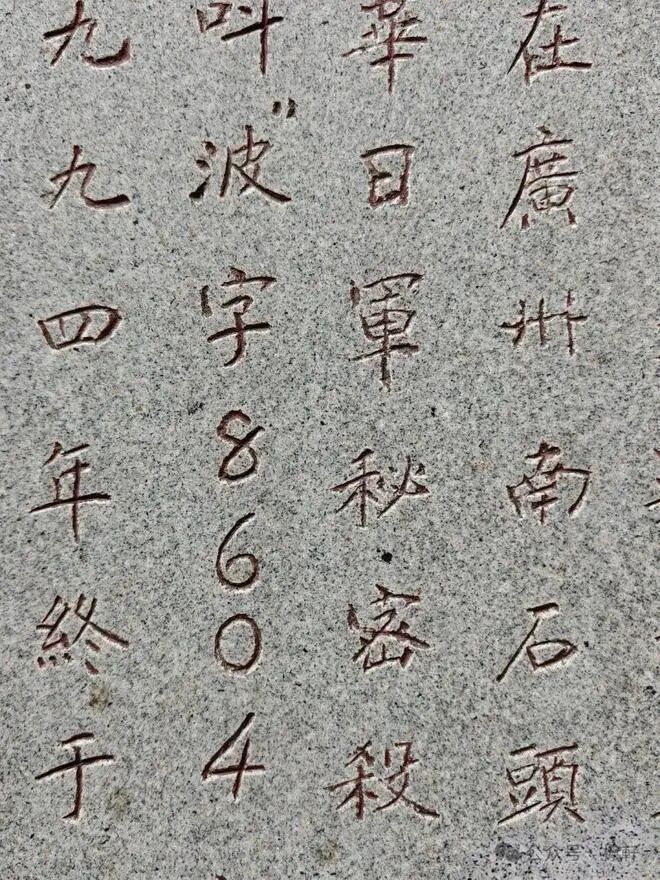 在廣州南石頭
華日軍秘密殺
叫"波字8604
九九四年終于
公众号